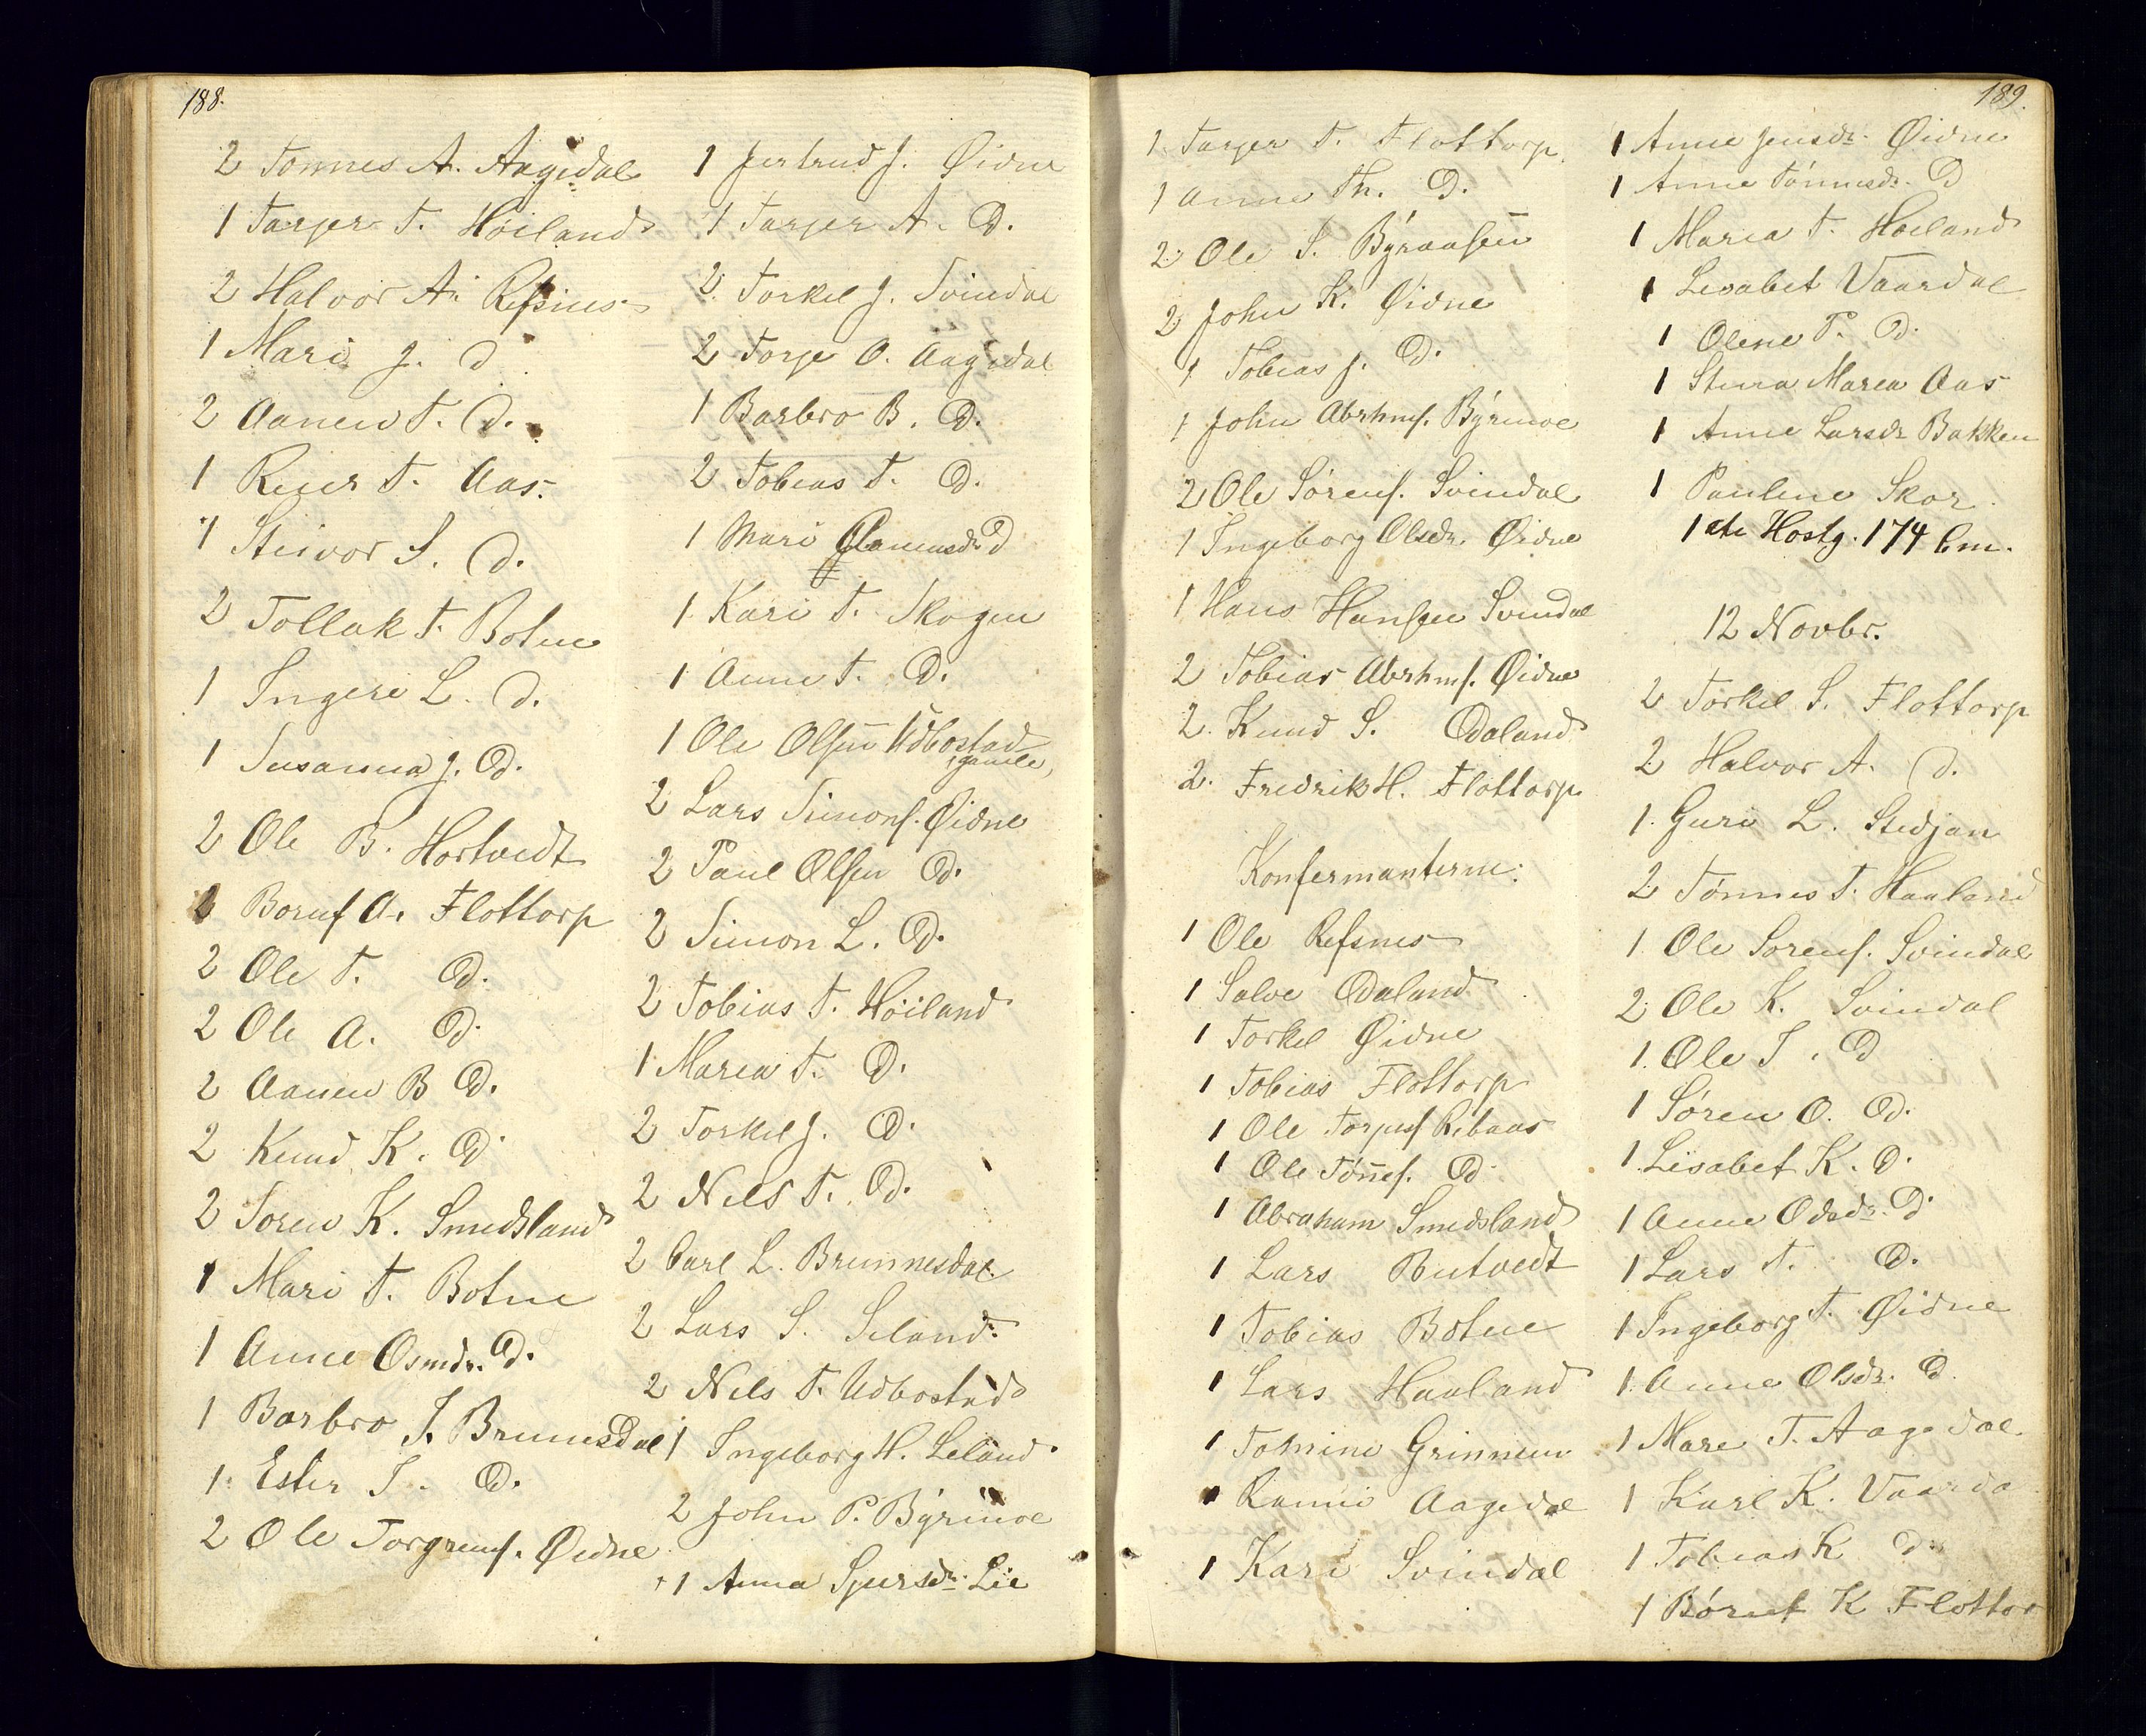 188.
2 Tønnes A. Aagedal
1 Tarjer T. Høiland
2 Halvor A. Refsnes
1 Mari J. d
2 Aanen T. D.
1 Reier T. Aas.
1 Steivor S. D.
2 Tollak T. Botne
1 Ingeri L. D.
1 Susanna J. D.
2 Ole B. Hortvedt
2 Boruf A. Flottorp
2 Ole T. D.
2 Ole A. D.
2 Aanen B D.
2 Knud K. D
2 Soren K. Smedsland
1 Mari T. Botne
1 Anne Osmdr. D.
1 Barbro T. Brunnesdal
1 Ester T. D.
2 Ole Torgrens. Øidne
1 Jertrud J. Øidne
1 Tarjer A. D.
2 Torkel J. Svindal
2 Torje O. Aagedal
1 Barbro B. D.
2 Tobias T. D.
1 Mari D
1 Kari T. Skogen
1 Anne T. D.
1 Ole Olsen Udbostad
gamle
2 Lars Simons. Øidne
2 Paul Olsen D.
2 Simon L. D.
2 Tobias T. Höiland
1 Maria T. D.
2 Torkel J. D.
2 Nils T. D.
2 Carl L. Brunnesdal
2 Lars S. Seland
2 Nils T. Udbostad
1 Ingeborg H. Leland
2 John P. Býrmoe
1 Anna Sjursdr. Lie
189.
1 Tarjer T. Flottorp
1 Anne Th. D.
2 Ole S. Býraasen
2 John K. Øidne
1 Tobias J. D.
1 John Abrhms. Býrmoe
2 Ole Sørens. Svindal
1 Ingeborg Olsdr. Øidne
1 Hans Hansen Svindal
2 Tobias Abrhms. Øidne
2 Knud S. Odaland
2 Fredrik H. Flottorp
Konfermanterne:
1 Ole Refsnes
1 Salve Odaland
1 Torkel Øidne
1 Tobias Flottorp
1 Ole Torjus Ribaas
1 Ole Tönnes. D
1 Abraham Smedsland
1 Lars Butvedt
1 Tobias Botne
1 Lars Haaland
1 Tomine Grinnem
1 Ranni Aagedal
1 Kari Svindal
1 Anne Jensdr. Øidne
1 Anne Tönnesdr. D
1 Maria T. Høiland
1 Lisabet Vaardal
1 Olene T. D.
1 Stina Maria Aas
1 Anne Larsdr Bakken
1 Pauline Skar
1ste Hostg. 174 Cm.
12 Novbr.
2 Torkel S. Flottorp
2 Halvor A. D.
1 Guri L. Stedjan
2 Tönnes T. Haaland
1 Ole Sorens. Svindal
2 Ole K. Svindal
1 Ole T. D
1 Søren O. D.
1 Lisabet K. D.
1 Anne Odsdr. D
1 Lars T. D.
1 Ingeborg T. Øidne
1 Anne Olsdr. D
1 Mari T. Aagedal
1 Karl K. Vaarda
1 Tobias K D
1 Børuf K Flottor